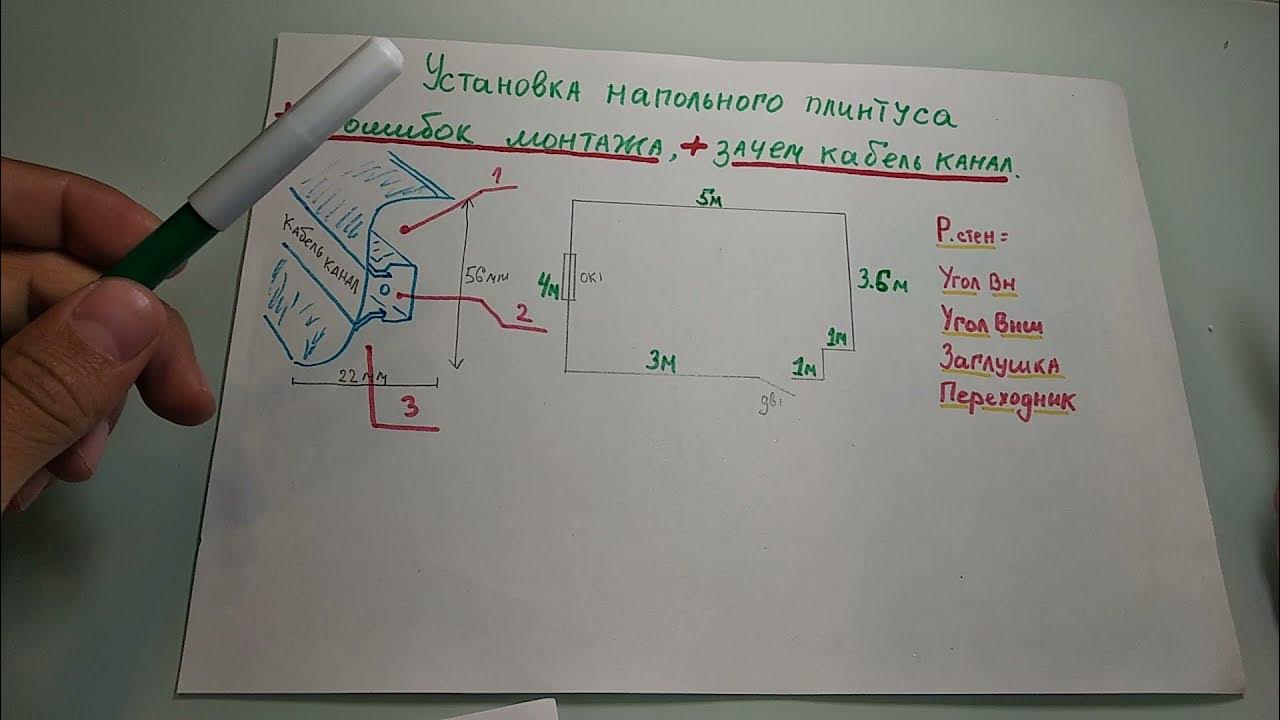 Установка напольного плинтуса
+ ошибок монтажа, + зачем кабель канал.
1
Кабель канал
56мм
2
22мм
3
5м
4м
ок1
3.6м
1м
1м
3м
дв1
P.стен=
Угол Вн
Угол Внш
Заглушка
Переходник